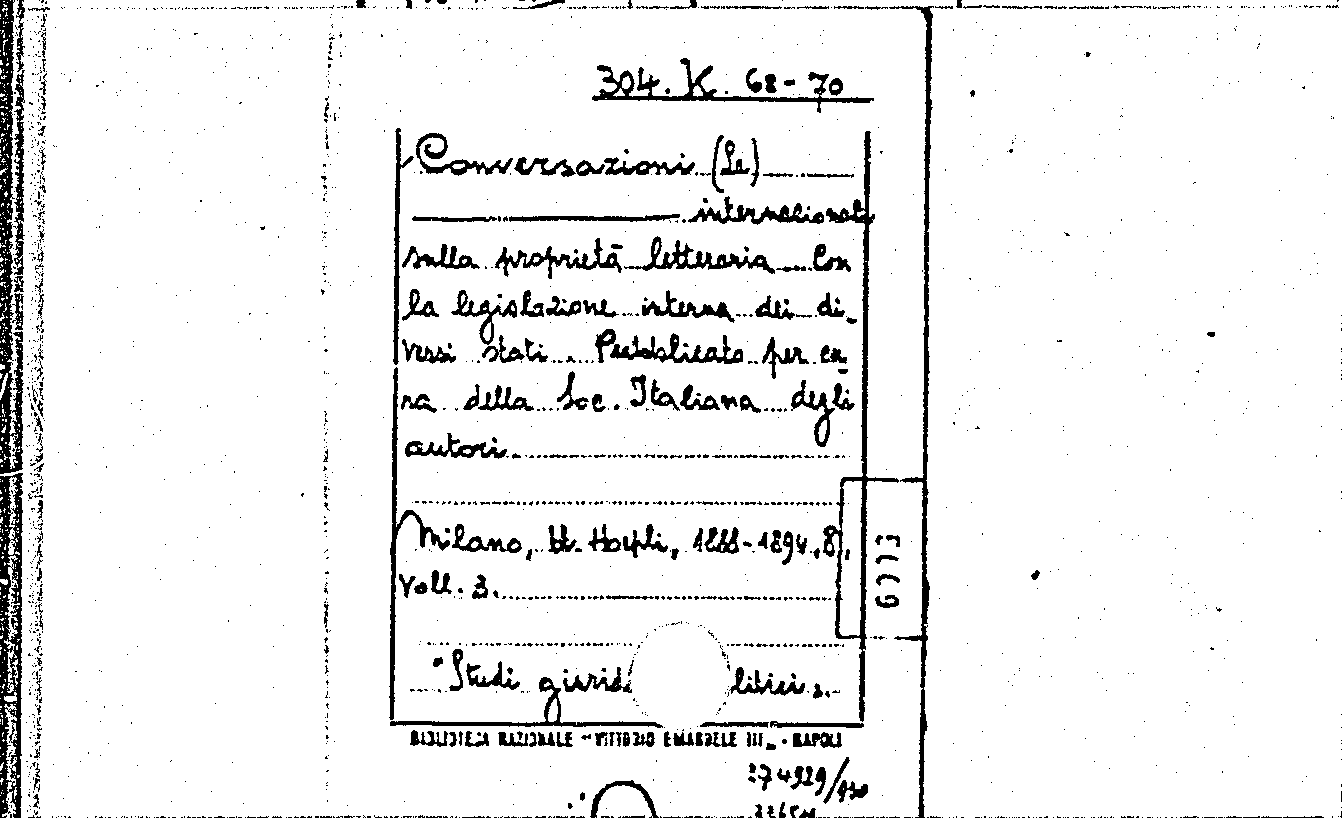 304. K. 68-70
Conversazioni (Le)
internazionale
sulla proprietà letteraria con
la legislazione interna dei di-
versi stati. Pubblicato per cu-
ra della Soc. Italiana degli
autori.
Milano, U. Hoepli, 1888-1894, 8°,
Voll. 3.
"Studi giurid litici".
BIBLIOTECA NAZIONALE "VITTORIO EMANUELE III" - NAPOLI
274929/